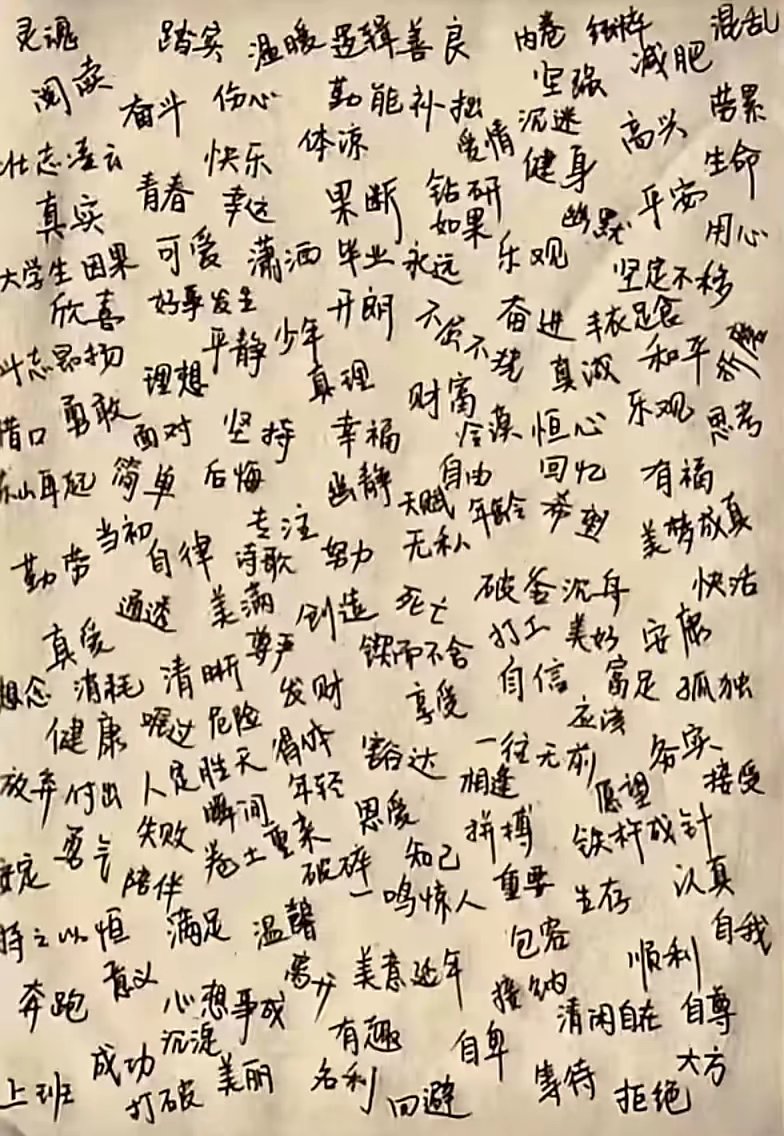 灵魂 踏实 温暖 逻辑 善良 内卷 纯粹 混乱
阅读 奋斗 伤心 勤能补拙 坚强 减肥
壮志凌云 快乐 体谅 爱情 沉迷 高兴 劳累
真实 青春 幸运 果断 钻研 健身 平安 生命
大学生 因果 可爱 潇洒 毕业 永远 如果 乐观 幽默 用心
欣喜 好事发生 开朗 不屈不挠 奋进 丰衣足食 坚定不移
斗志昂扬 理想 平静 少年 真理 财富 真诚 和平
借口 勇敢 面对 坚持 幸福 冷漠 恒心 乐观 思考
东山再起 简单 后悔 幽静 自由 回忆 有福
勤劳 当初 自律 专注 诗歌 努力 天赋 无私 年龄 美梦成真
真爱 通透 美满 创造 死亡 破釜沉舟 快活
想念 消耗 清晰 尊严 锲而不舍 打工 美好 安康
健康 嘱过 危险 发财 享受 自信 富足 孤独
放弃 付出 人定胜天 得体 豁达 一往无前 应该 务实
安定 勇气 失败 瞬间 年轻 恩爱 相逢 愿望 接受
陪伴 卷土重来 破碎 知己 拼搏 铁杵成针
持之以恒 满足 温馨 一鸣惊人 重要 生存 认真
奔跑 意义 心想事成 美意延年 包容 接纳 顺利 自我
沉淀 有趣 自卑 清闲自在 自尊
上班 成功 打破 美丽 名利 回避 等待 拒绝 大方